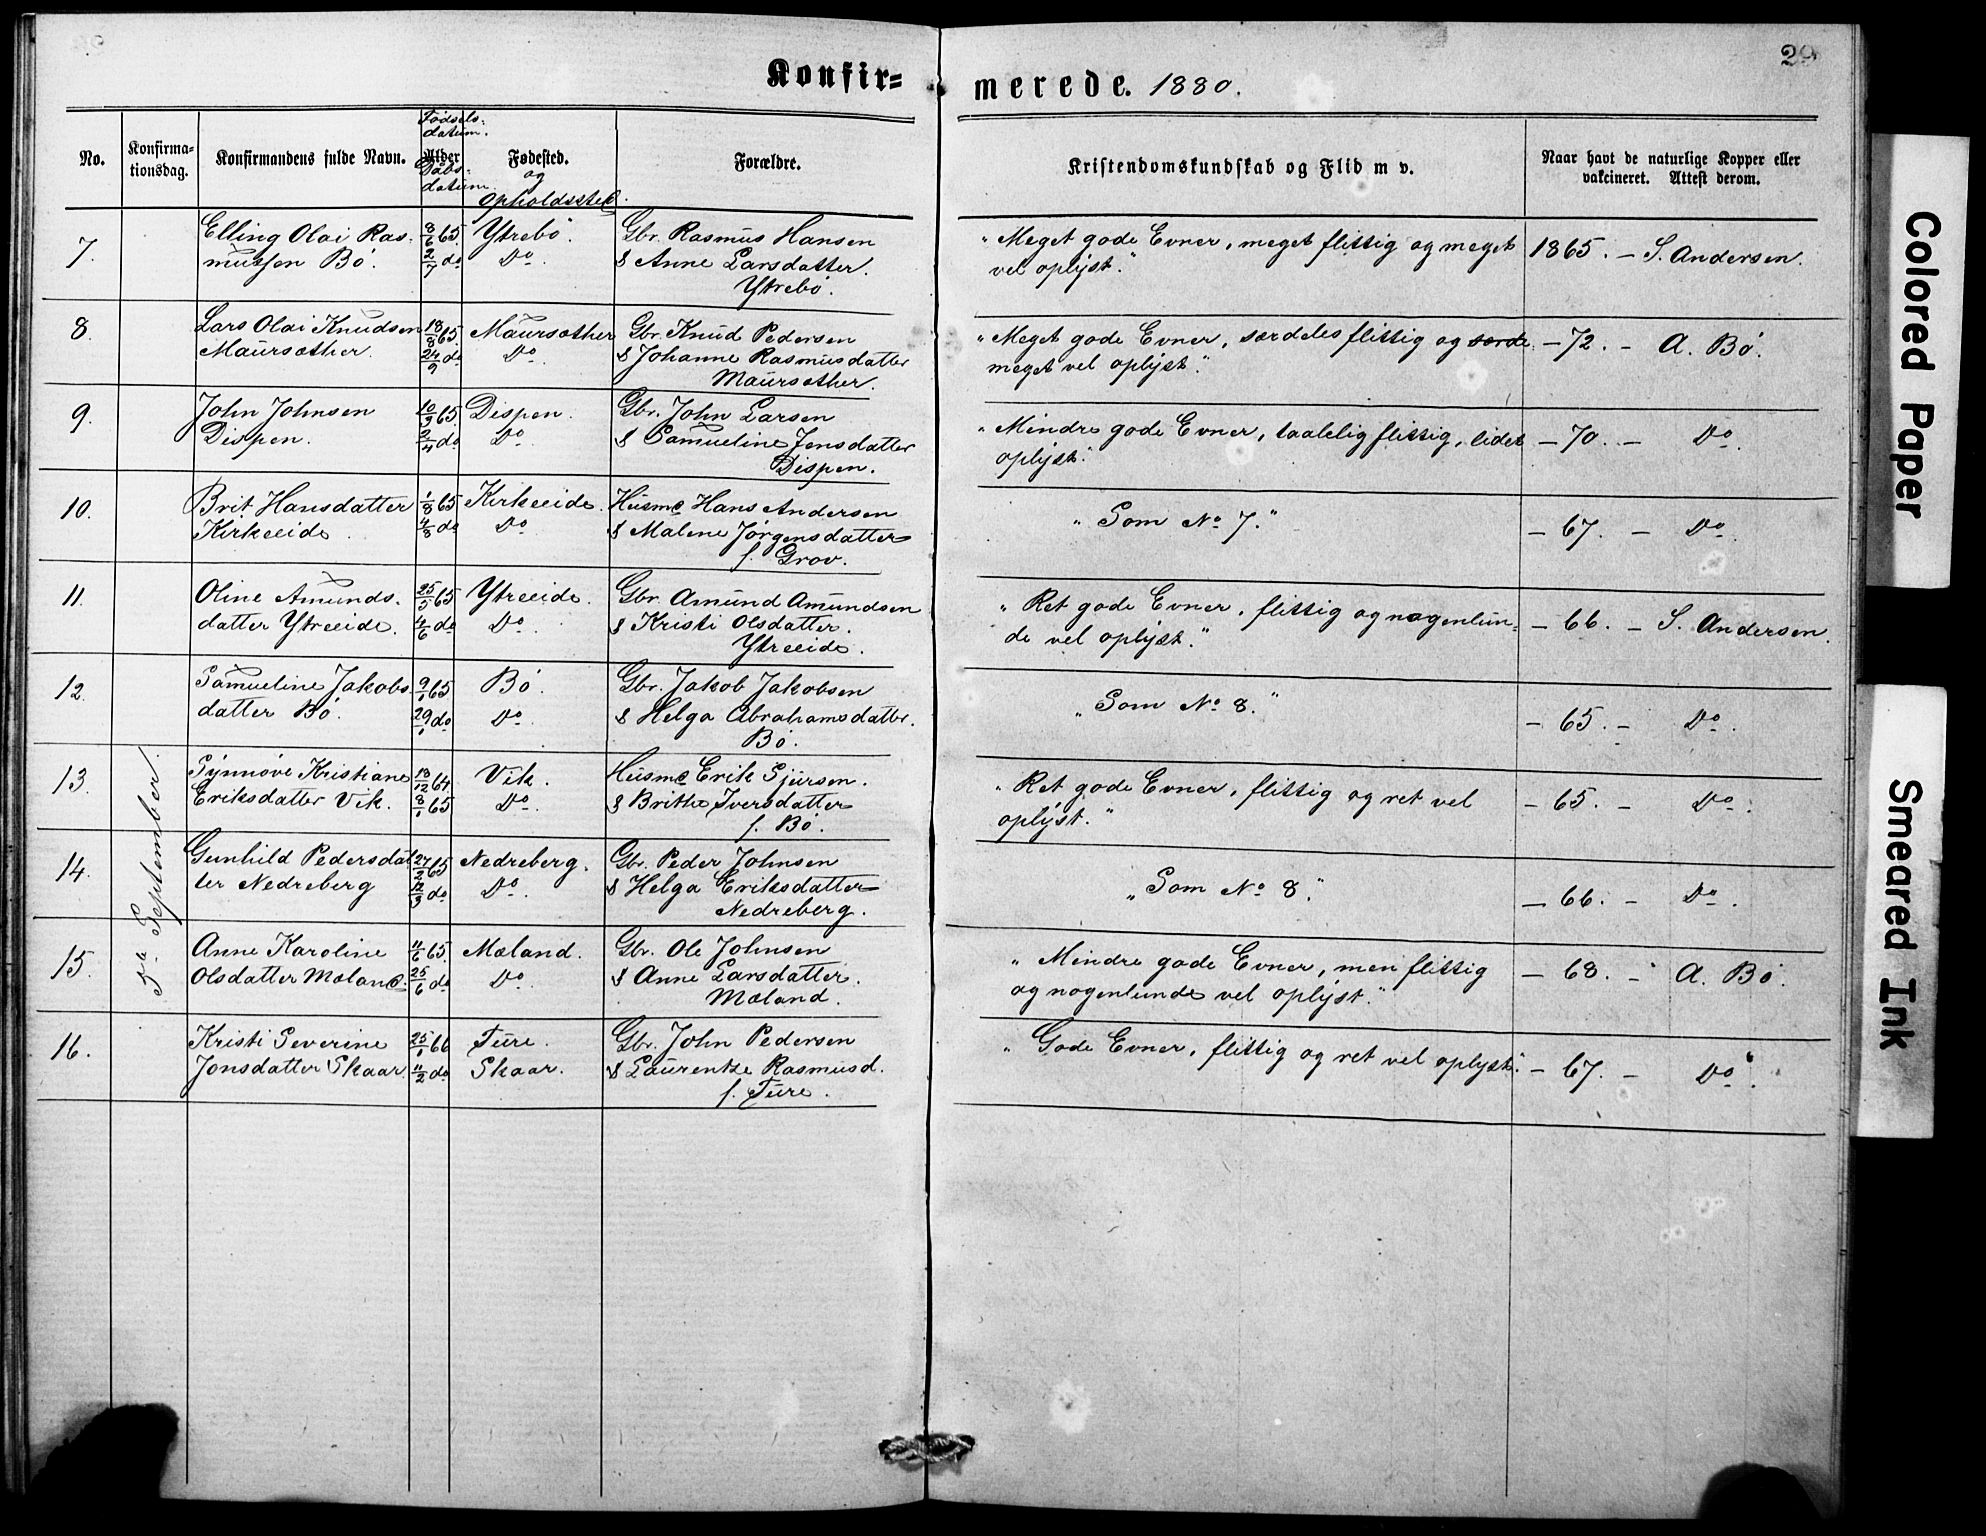 29
Konfir=
merede. 1880.
No.
Konfirma-
tionsdag.
Konfirmandens fulde Navn.
Fødsels-
datum.
Alder
Daabs-
datum.
Fødested.
og
Opholdssted.
Forældre.
Kristendomskundskab og Flid m v.
Naar havt de naturlige Kopper eller
vakcineret. Attest derom.
5te September.
7.
Elling Olai Ras-
mussen Bö.
8/6 65.
2/7 do
Ytrebö.
Do.
Gbr. Rasmus Hansen
& Anne Larsdatter.
Ytrebö.
"Meget gode Evner, meget flittig og meget
vel oplyst."
1865. - S. Andersen.
8.
Lars Olai Knudsen
Maursæther.
18/8 65.
24/9 do
Maursæther
Do.
Gbr. Knud Pedersen
& Johanne Rasmusdatter
Maursæther.
"Meget gode Evner, særdeles flittig og særde
meget vel oplyst."
- 72. - A. Bö.
9.
John Johnsen
Dispen.
10/3 65.
2/4 do
Dispen.
Do.
Gbr. John Larsen
& Samueline Jensdatter
Dispen.
"Mindre gode Evner, taalelig flittig, lidet
oplyst."
- 70. - Do.
10.
Brit Hansdatter
Kirkeeide.
1/8 65
4/8 do
Kirkeeide.
Do.
Husmd Hans Andersen
& Malene Jörgensdatter
f. Grov.
"Som No 7."
- 67. - Do.
11.
Oline Amunds-
datter Ytreeide.
25/5 65
4/6 do
Ytreeide.
Do.
Gbr. Amund Amundsen
& Kristi Olsdatter.
Ytreeide.
"Ret gode Evner, flittig og nogenlun-
de vel oplyst."
- 66. - S. Andersen.
12.
Samueline Jakobs-
datter Bö.
9/1 65
29/1 do
Bö.
Do.
Gbr. Jakob Jakobsen
& Helga Abrahamsdatter.
Bö.
"Som No 8."
- 65. - Do.
13.
Synnöve Kristiane
Eriksdatter Vik.
18/12 64.
8/1 65
Vik.
Do.
Husmd Erik Sjursen.
& Brithe Iversdatter
f. Bö.
"Ret gode Evner, flittig og ret vel
oplyst."
- 65. - Do.
14.
Gunhild Pedersdat-
ter Nedreberg
27/2 65
12/3 do
Nedreberg.
Do.
Gbr. Peder Johnsen
& Helga Eriksdatter
Nedreberg.
"Som No 8."
- 66. - Do.
15.
Anne Karoline
Olsdatter Mæland.
11/6 65.
25/6 do
Mæland.
Do.
Gbr. Ole Johnsen
& Anne Larsdatter.
Mæland.
"Mindre gode Evner, men flittig
og nogenlunde vel oplyst."
- 68. - A. Bö.
16.
Kristi Severine
Jonsdatter Skaar.
25/1 66
11/2 do
Ture.
Skaar.
Gbr. John Pedersen
& Laurentze Rasmusd.
f. Ture.
"Gode Evner, flittig og ret vel oplyst."
- 67. - Do.
Colored Paper
Smeared Ink